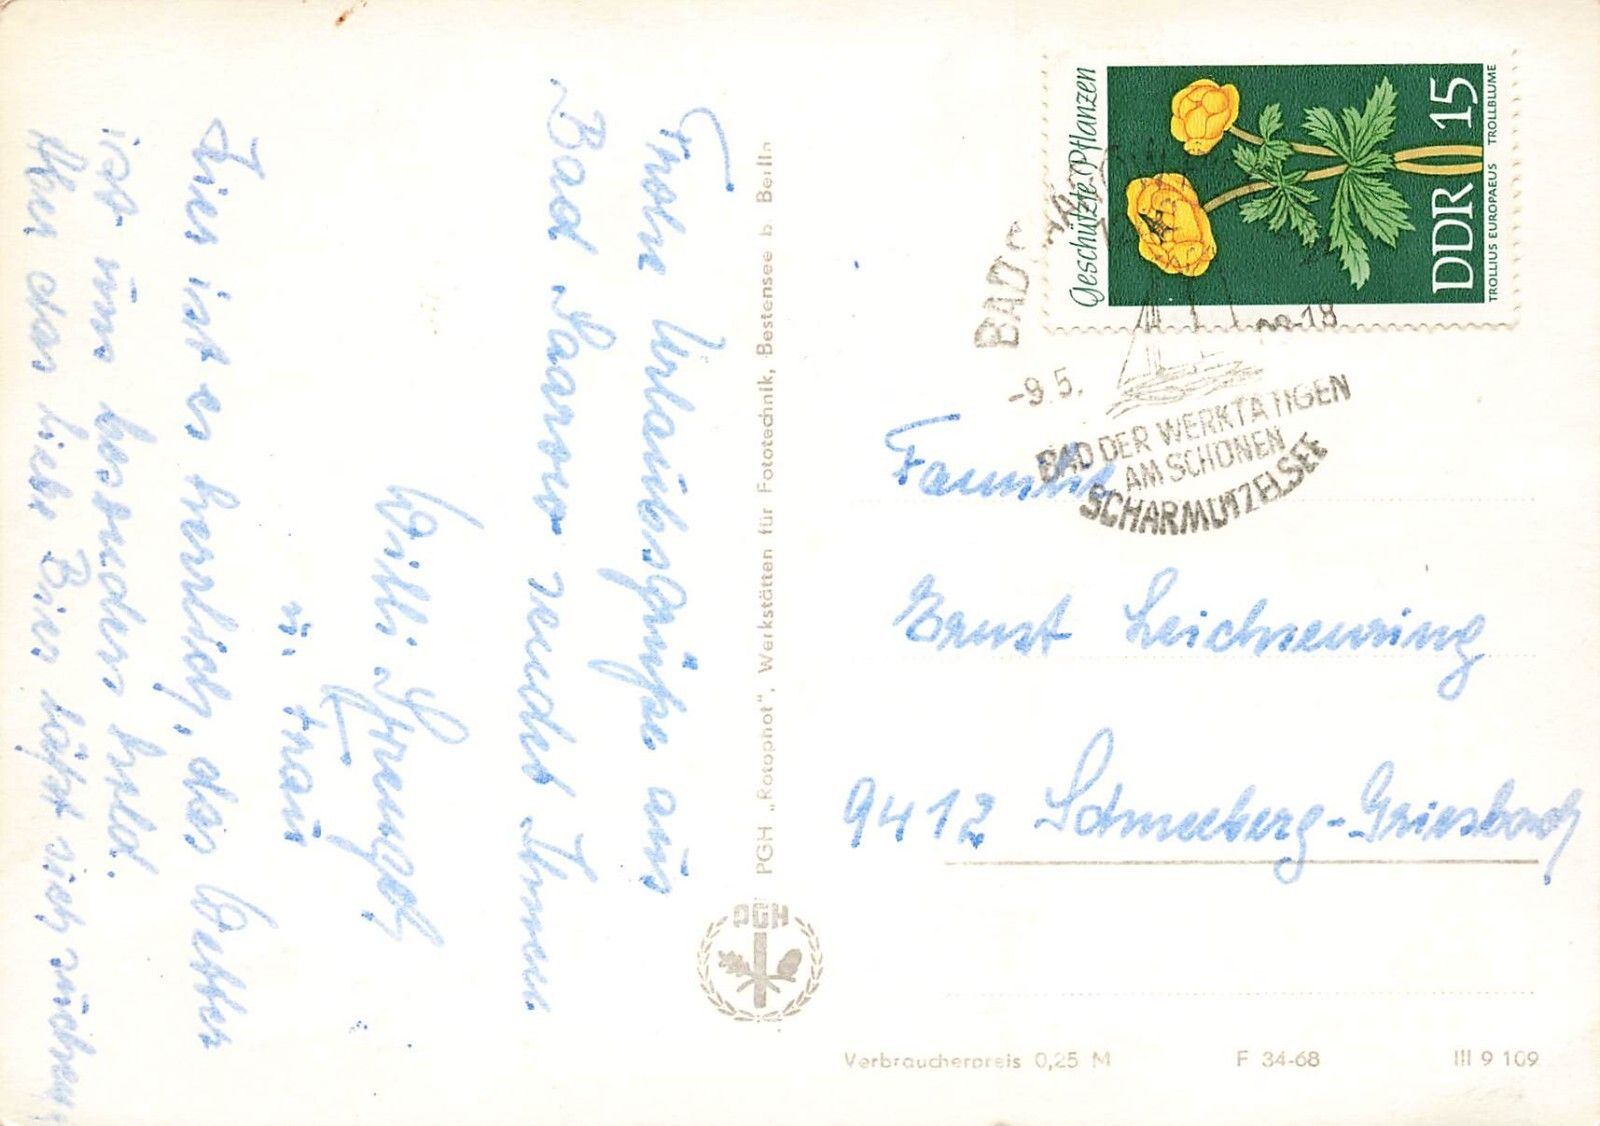 Frohe Urlaubsgrüße aus
Bad Saarow sendet Ihnen
Willi
u. Frau
Hier ist es herrlich, das Wetter
ist uns besonders hold.
Aber das liebe Bier läßt sich suchen
PGH „Rotophot“, Werkstätten für Fototechnik, Bestensee b. Berlin
PGH
Geschützte Pflanzen
DDR 15
TROLLIUS EUROPAEUS TROLLBLUME
BAD
-9.5. -18
BAD DER WERKTÄTIGEN
AM SCHÖNEN
SCHARMÜTZELSEE
Familie
Ernst Leichsenring
9412 Schneeberg-Griesbach
Verbraucherpreis 0,25 M F 34-68 III 9 109